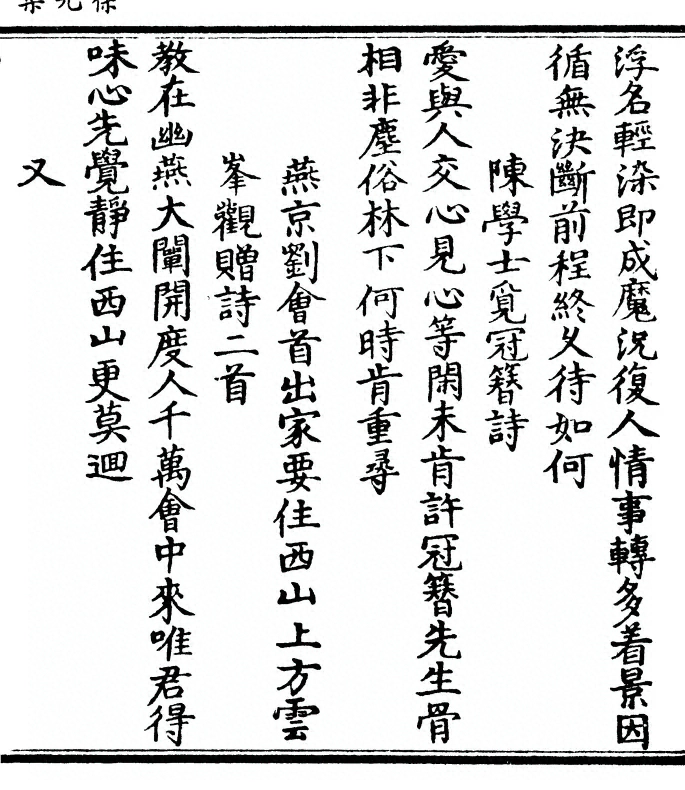 浮名輕染即成魔況復人情事轉多着景因
循無決斷前程終久待如何
陳學士覓冠簪詩
愛與人交心見心等閑未肯許冠簪先生骨
相非塵俗林下何時肯重尋
燕京劉會首出家要住西山上方雲
峯觀贈詩二首
教在幽燕大闡開度人千萬會中來唯君得
味心先覺靜住西山更莫迴
又